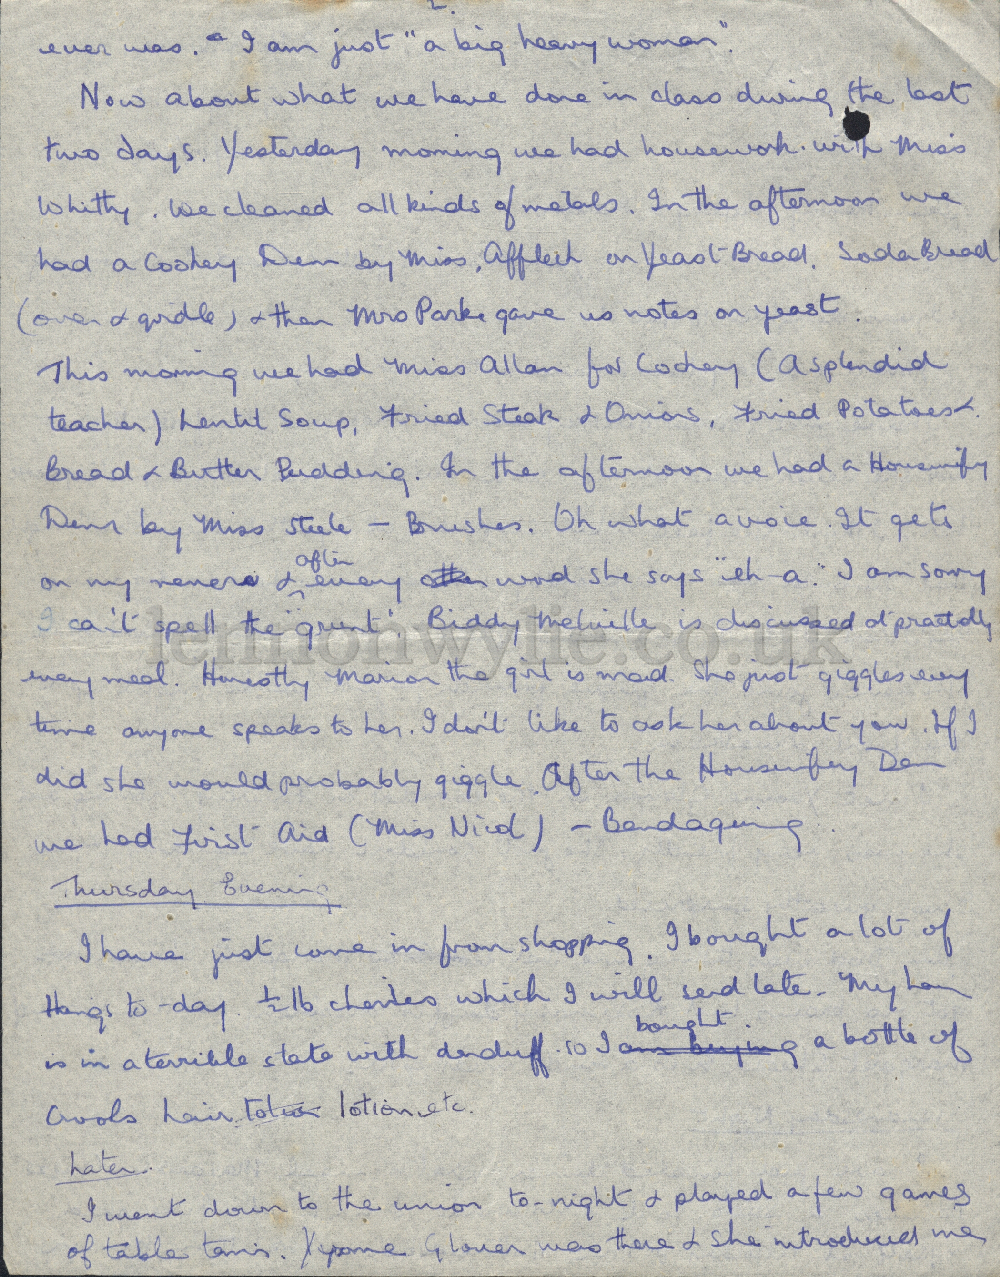 2.
ever was. I am just "a big heavy woman".
Now about what we have done in class during the last
two days. Yesterday morning we had housework with Miss
Whitty. We cleaned all kinds of metals. In the afternoon we
had a Cookery Dem by Miss Affleck on Yeast Bread, Soda Bread
(oven & girdle) & then Mrs Parke gave us notes on yeast.
This morning we had Miss Allan for Cookery (A splendid
teacher) Lentil Soup, Fried Steak & Onions, Fried Potatoes &
Bread & Butter Pudding. In the afternoon we had a Housewifery
Dem by Miss Steele – Brushes. Oh what a voice. It gets
after
on my nerves & every word she says "eh-a". I am sorry
I can't spell the "grunt". Biddy Melville is discussed at practically
every meal. Honestly Marion the girl is mad. She just giggles every
time anyone speaks to her. I don't like to ask her about you. If I
did she would probably giggle. After the Housewifery Dem
we had First Aid (Miss Nicol) – Bandaging.
Thursday Evening
I have just come in from shopping. I bought a lot of
things to-day. ½ lb cherries which I will send later. My hair
bought
is in a terrible state with dandruff so I am buying a bottle of
hair lotion etc.
Later.
I went down to the union to-night & played a few games
of table tennis. Glover was there & she introduced me
lennonwylie.co.uk